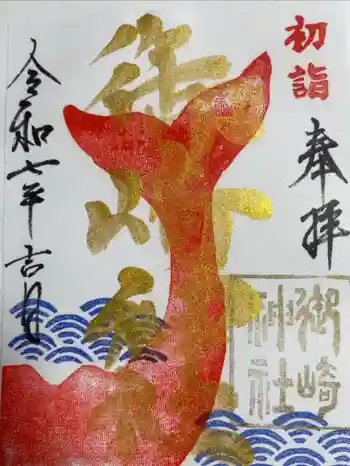 初詣
奉拝
御崎
神社
令和七年 吉月